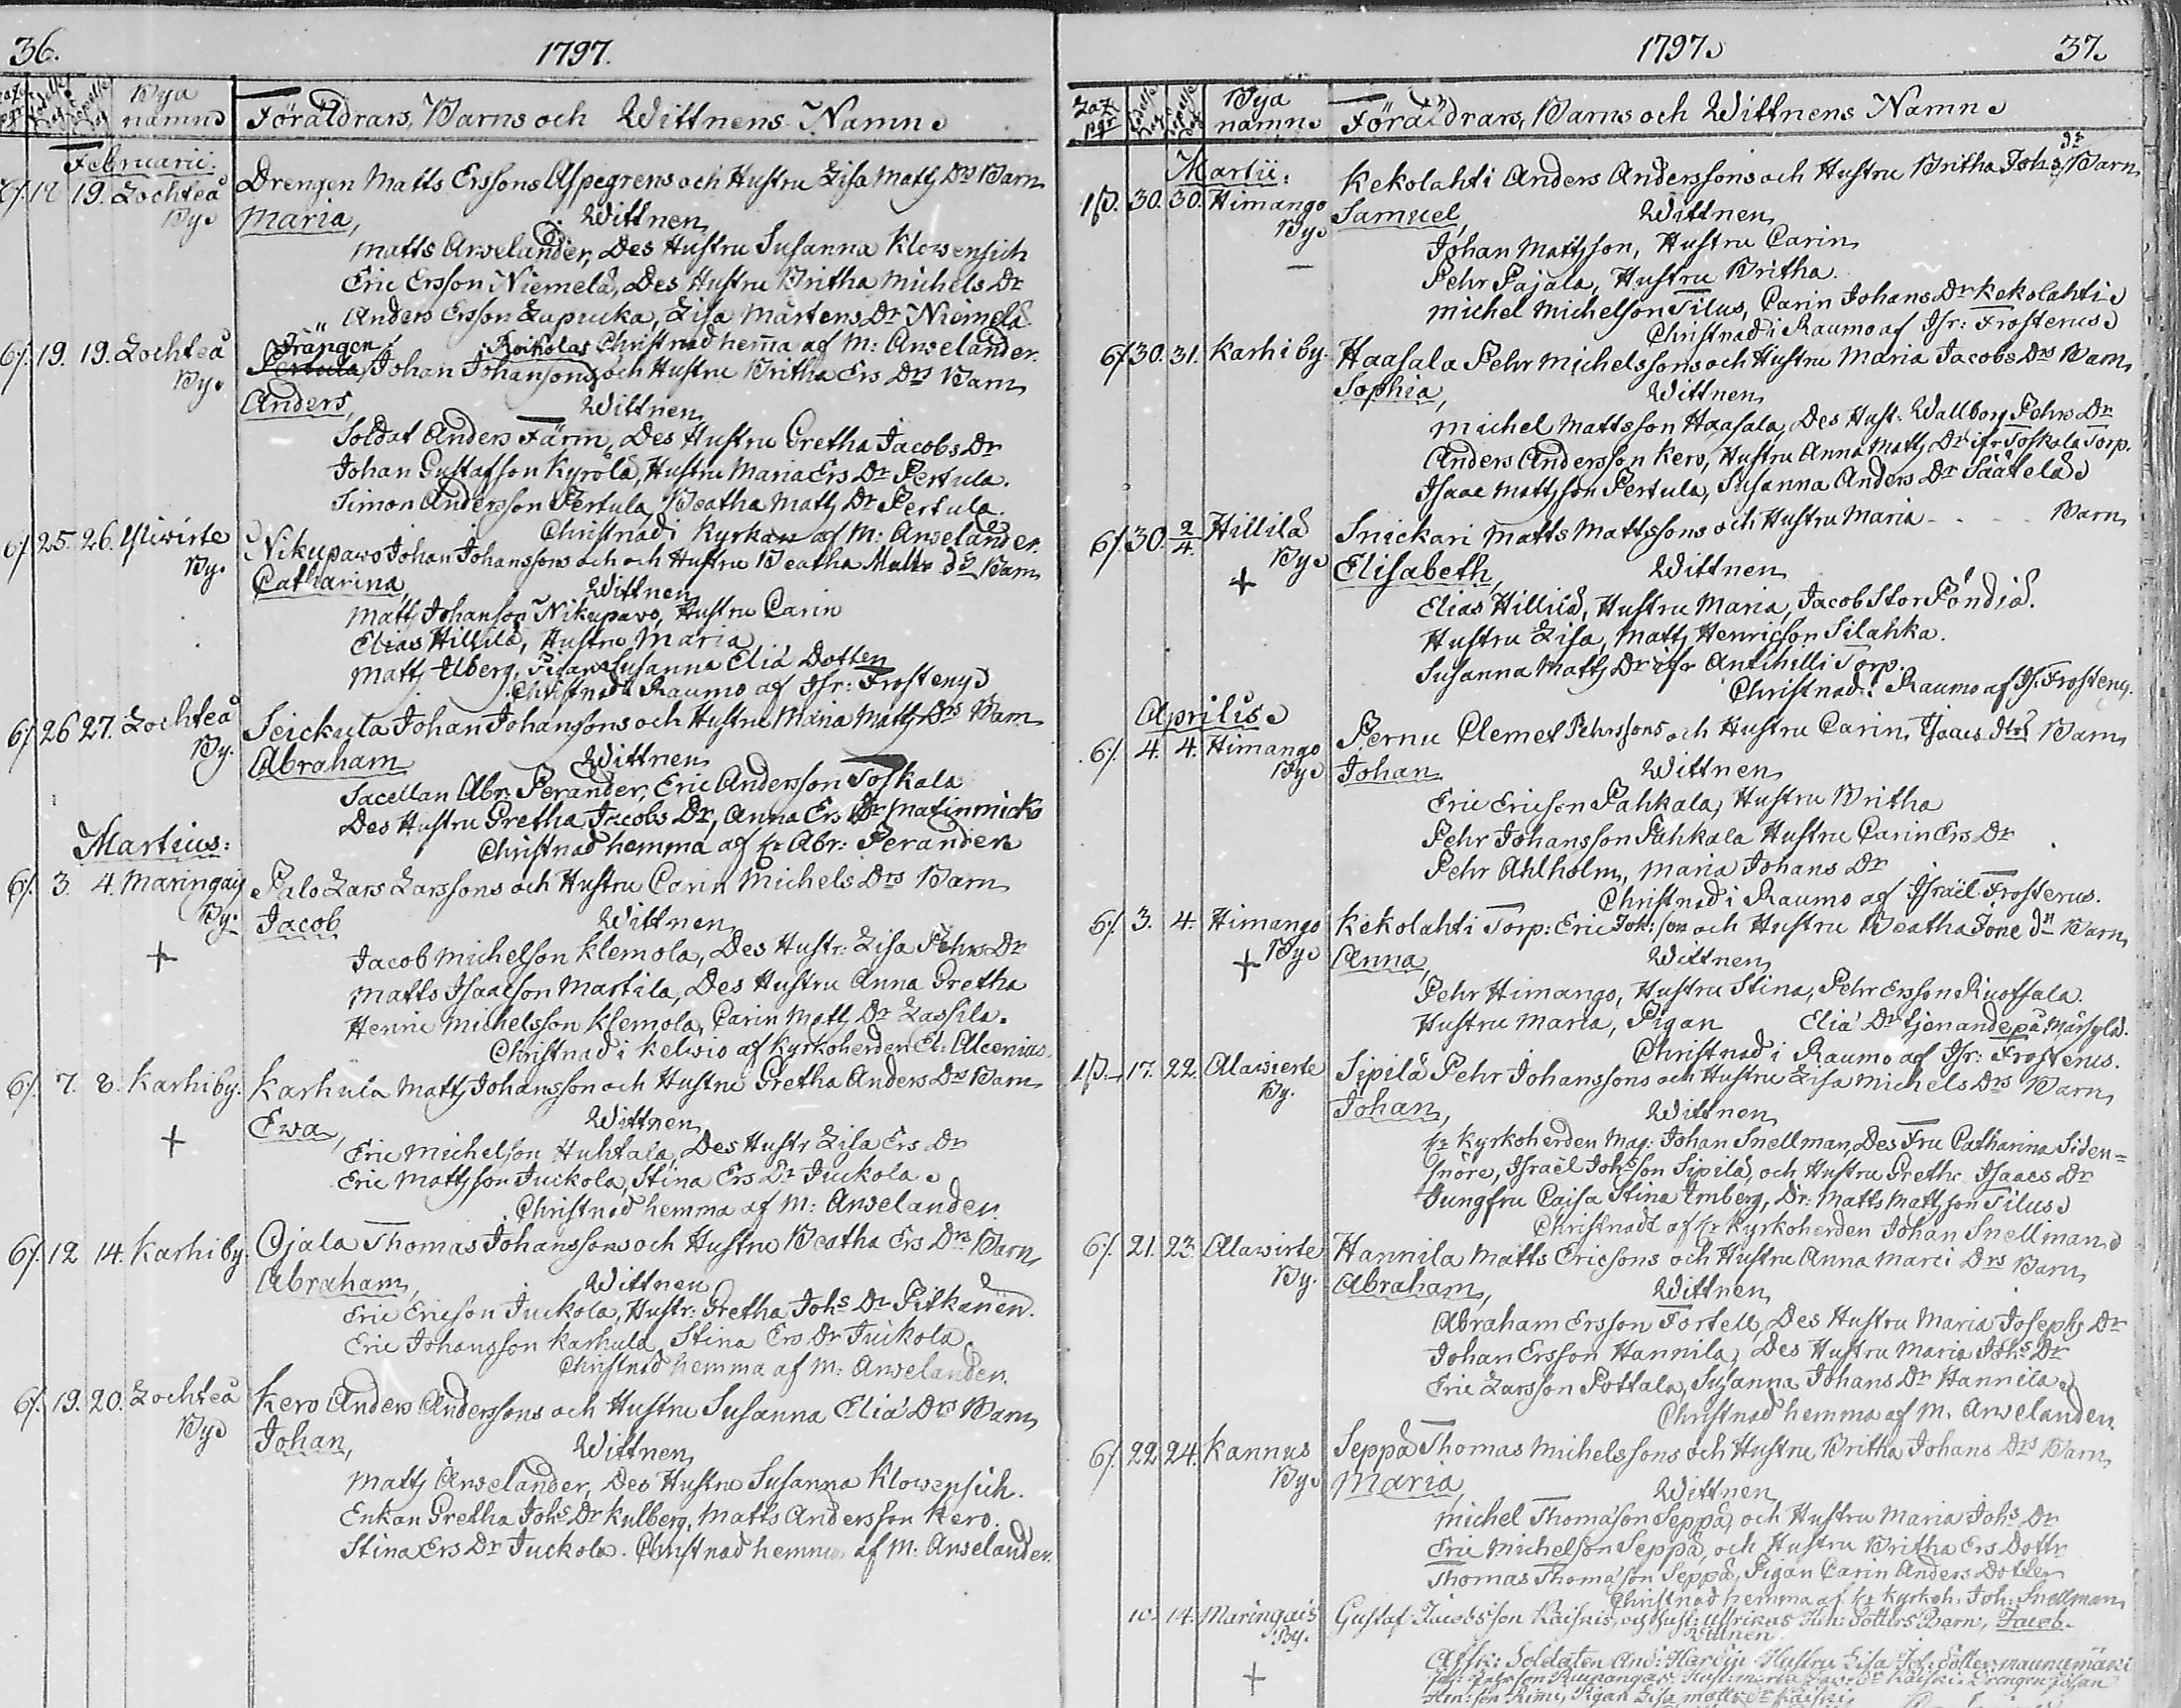 36.
1797.
Bya namn
Föräldrars, Barns och Wittnens Namn
Februarii.
6/. 18 19. Lochteå By. Drengen Matts Erssons Aspegrens och Hustru Lisa Matts Drs Barn
Maria, Wittnen
Matts Arwelander, Des Hustru Susanna Klowensich
Eric Ersson Niemelä, Des Hustru Britha Michels Dr
Anders Ersson Lapucka, Lisa Mårtens Dr Niemelä
Christnad hemma af M: Arwelander.
6/. 19. 19. Lochteå By. Drängen Roikolas
Pertula Johan Johansons och Hustru Britha Ers Drs Barn
Anders, Wittnen
Soldat Anders Färm, Des Hustru Gretha Jacobs Dr
Johan Gustafson Kyrölä, Hustru Maria Ers Dr Pertula.
Simon Andersson Pertula, Beatha Matts Dr Pertula.
Christnad i Kyrkan af M: Arwelander.
6/. 25. 26. Yliwirte By. Nikupawo Johan Johanssons och och Hustru Beatha Matts ds Barn
Catharina, Wittnen
Matts Johanson Nikupawo, Hustru Carin
Elias Hillilä, Hustru Maria
Matts Ulberg, Pigan Susanna Elia Dotter
Christnad i Raumo af Isr: Frosterus
6/. 26 27. Lochteå By. Seickula Johan Johanssons och Hustru Maria Matts Drs Barn
Abraham Wittnen
Sacellan Abr. Perander, Eric Andersson Toskala
Des Hustru Gretha Jacobs Dr, Anna Ers Dr Matinmicko
Christnad hemma af Hr Abr: Perander
Martius:
6/. 3. 4. Maringais By. Palo Lars Larssons och Hustru Carin Michels Drs Barn
Jacob Wittnen
+ Jacob Michelson Klemola, Des Hustr: Lisa Pehrs Dr
Matts Isaacson Martila, Des Hustru Anna Gretha
Henric Michelsson Klemola, Carin Matts Dr Lassila.
Christnad i Kelwio af Kyrkoherden El: Alcenius.
6/. 7. 8. Karhi by. Karhula Matts Johansson och Hustru Gretha Anders Drs Barn
+ Ewa, Wittnen
Eric Michelson Huhtala, Des Hustr Lisa Ers Dr
Eric Mattsson Juckola, Stina Ers Dr Juckola
Christnad hemma af M: Arwelander.
6/. 12 14. Karhi by. Ojala Thomas Johanssons och Hustru Beatha Ers Drs Barn
Abraham, Wittnen
Eric Ericson Juckola, Hustr: Gretha Johs Dr Pitkänen.
Eric Johansson Karhula, Stina Ers Dr Juckola
Christnad hemma af M: Arwelander.
6/. 19. 20. Lochteå By Kero Anders Anderssons och Hustru Susanna Elia Drs Barn
Johan, Wittnen
Matts Arwelander, Des Hustru Susanna Klowensich.
Enkan Gretha Johs Dr Kulberg, Matts Andersson Kero.
Stina Ers Dr Juckola. Christnad hemma af M: Arwelander.
1797.
37.
Bya namn
Föräldrars, Barns och Wittnens Namn
Martii:
30. 30. Himango By Kekolahti Anders Anderssons och Hustru Britha Johs ds Barn
Samuel, Wittnen
Johan Mattsson, Hustru Carin
Pehr Pajala, Hustru Britha.
Michel Michelson Tilus, Carin Johans Dr Kekolahti
Christnad i Raumo af Isr: Frosterus
6/. 30. 31. Karhi by. Haasala Pehr Michelssons och Hustru Maria Jacobs Drs Barn
Sophia, Wittnen
Michel Mattsson Haasala, Des Hust: Wallborg Pehrs Dr
Anders Andersson Kero, Hustru Anna Matts Dr ifr Toskala Torp.
Isaac Mattsson Pertula, Susanna Anders Dr Säätelä
6/. 30. 2/4. Hillilä By Snickari Matts Mattssons och Hustru Maria - - - Barn
+ Elisabeth, Wittnen
Elias Hillilä, Hustru Maria, Jacob Stor Pöndiä.
Hustru Lisa, Matts Henricson Silahka.
Susanna Matts Dr ifr Anttihilli Torp.
Christnad i Raumo af Is. Frosterus.
Aprilis
6/. 4. 4. Himango By Pernu Clemet Pehrssons och Hustru Carin Isaacs Drs Barn
Johan Wittnen
Eric Ericson Pahkala, Hustru Britha
Pehr Johansson Pahkala Hustru Carin Ers Dr
Pehr Ahlholm, Maria Johans Dr
Christnad i Raumo af Israël Frosterus.
6/. 3. 4. Himango By Kekolahti Torp: Eric Joh: son och Hustru Beatha Jone dr Barn
+ Anna, Wittnen
Pehr Himango, Hustru Stina, Pehr Ersson Ruotsala.
Hustru Maria, Pigan Elia Dr tjenande på Märsylä.
Christnad i Raumo af Isr: Frosterus.
17. 22 Alawirte By. Sipilä Pehr Johanssons och Hustru Lisa Michels Drs Barn
Johan, Wittnen
Hr Kyrkoherden Mag: Johan Snellman, Des Fru Catharina Siden=
snöre, Israël Johsson Sipilä, och Hustru Greth: Isaacs Dr
Jungfru Caisa Stina Emberg, Dr: Matts Mattsson Tilus
Christnadt af Hr Kyrkoherden Johan Snellman
6/. 21. 23. Alawirte By. Hannila Matts Ericsons och Hustru Anna Marci Drs Barn
Abraham, Wittnen
Abraham Ersson Fortell, Des Hustru Maria Josephs Dr
Johan Ersson Hannila, Des Hustru Maria Johs Dr
Eric Larsson Pottala, Susanna Johans Dr Hannila
Christnad hemma af M. Arwelander.
6/. 22 24. Kannus By Seppä Thomas Michelssons och Hustru Britha Johans Drs Barn
Maria, Wittnen
Michel Thomason Seppä, och Hustru Maria Johs Dr
Eric Michelson Seppä, och Hustru Britha Ers Dottr
Thomas Thomason Seppä, Pigan Carin Anders Dotter
Christnad hemma af Hr Kyrkoh. Joh: Snellman
10. 14. Maringais By. Gustaf Jacobsson Kaiskis, och Hust: Ullrikas Hin: Dotters Barn, Jacob.
Wittnen
+ Affsk: Soldaten And: Hardin Hustru Lisa Joh: Dotter